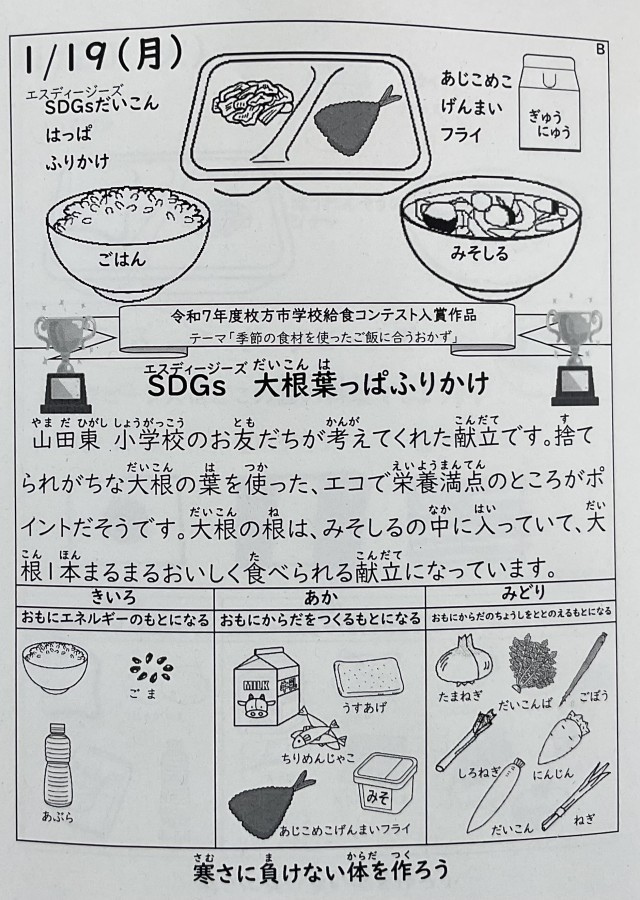 B
1/19(月)
エスディージーズ
SDGsだいこん
はっぱ
ふりかけ
あじこめこ
げんまい
フライ
ぎゅう
にゅう
ごはん
みそしる
令和7年度枚方市学校給食コンテスト入賞作品
テーマ「季節の食材を使ったご飯に合うおかず」
エスディージーズ だいこん は
SDGs 大根葉っぱふりかけ
やま だ ひがし しょうがっこう とも かんが こんだて す
山田東 小学校のお友だちが考えてくれた献立です。捨て
だいこん は つか えいようまんてん
られがちな大根の葉を使った、エコで栄養満点のところがポ
だいこん ね なか はい だい
イントだそうです。大根の根は、みそしるの中に入っていて、大
こん ほん た こんだて
根1本まるまるおいしく食べられる献立になっています。
きいろ
あか
みどり
おもにエネルギーのもとになる
おもにからだをつくるもとになる
おもにからだのちょうしをととのえるもとになる
ごま
あぶら
MILK
うすあげ
ちりめんじゃこ
みそ
あじこめこげんまいフライ
たまねぎ
だいこんば
ごぼう
しろねぎ
にんじん
だいこん
ねぎ
さむ ま からだ つく
寒さに負けない体を作ろう